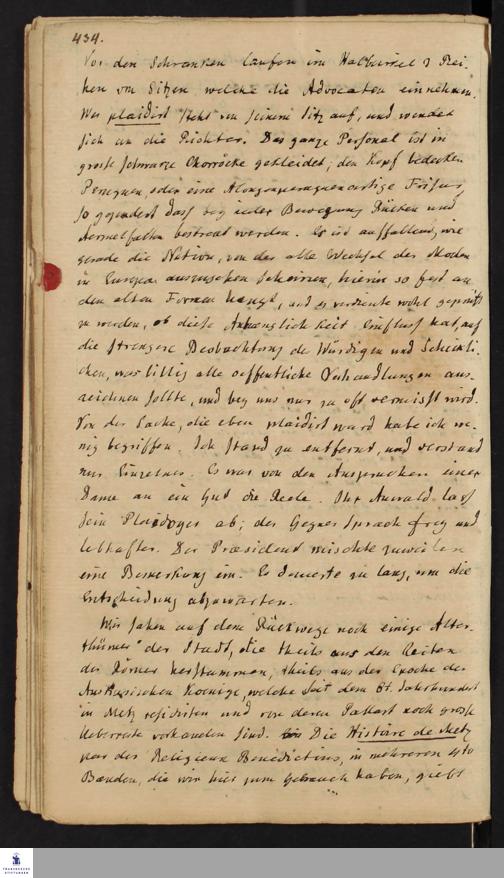 434.
Vor den Schranken laufen im Halbzirkel 3 Rei-
hen von Sitzen welche die Advocaten einnehmen.
Wer plaidirt steht von seinem Sitz auf, und wendet
sich an die Richter. Das ganze Personal ist in
grosse schwarze Chorröcke gekleidet; den Kopf bedecken
Peruquen, oder eine Alongenperuquenartige Frisur,
so gepudert dass bey jeder Bewegung Rücken und
Aermelfalten bestreut werden. Es ist auffallend, wie
gerade die Nation, von der alle Wechsel der Moden
in Europa auszugehen scheinen, hierin so fest an
den alten Formen hängt, und es verdiente wohl geprüft
zu werden, ob diese Anhänglichkeit Einfluss hat, auf
die strengere Beobachtung de Würdigen und Schickli-
chen, was billig alle oeffentliche Verhandlungen aus-
zeichnen sollte, und bey uns nur zu oft vermisst wird.
Von der Sache, die eben plaidirt ward habe ich we-
nig begriffen. Ich stand zu entfernt, und verstand
nur Einzelnes. Es war von den Anspruechen einer
Dame an ein Gut die Rede. Ihr Anwald las
sein Plaidoyer ab; der Gegner sprach frey und
lebhafter. Der Præsident mischte zuweilen
eine Bemerkung ein. Es dauerte zu lang, um die
Entscheidung abzuwarten.
Wir sahen auf dem Rückwege noch einige Alter-
thümer der Stadt, die theils aus den Zeiten
der Römer herstammen, theils aus der Epoche der
Austrasischen Koenige, welche seit dem 6t. Jahrhundert
in Metz residirten und von deren Pallast noch grosse
Ueberreste vorhanden sind. Die Histoire de Metz
par des Religieux Benedictins, in mehreren 4to
Baenden, die wir hier zum Gebrauch haben, giebt
FRANCKESCHE
STIFTUNGEN